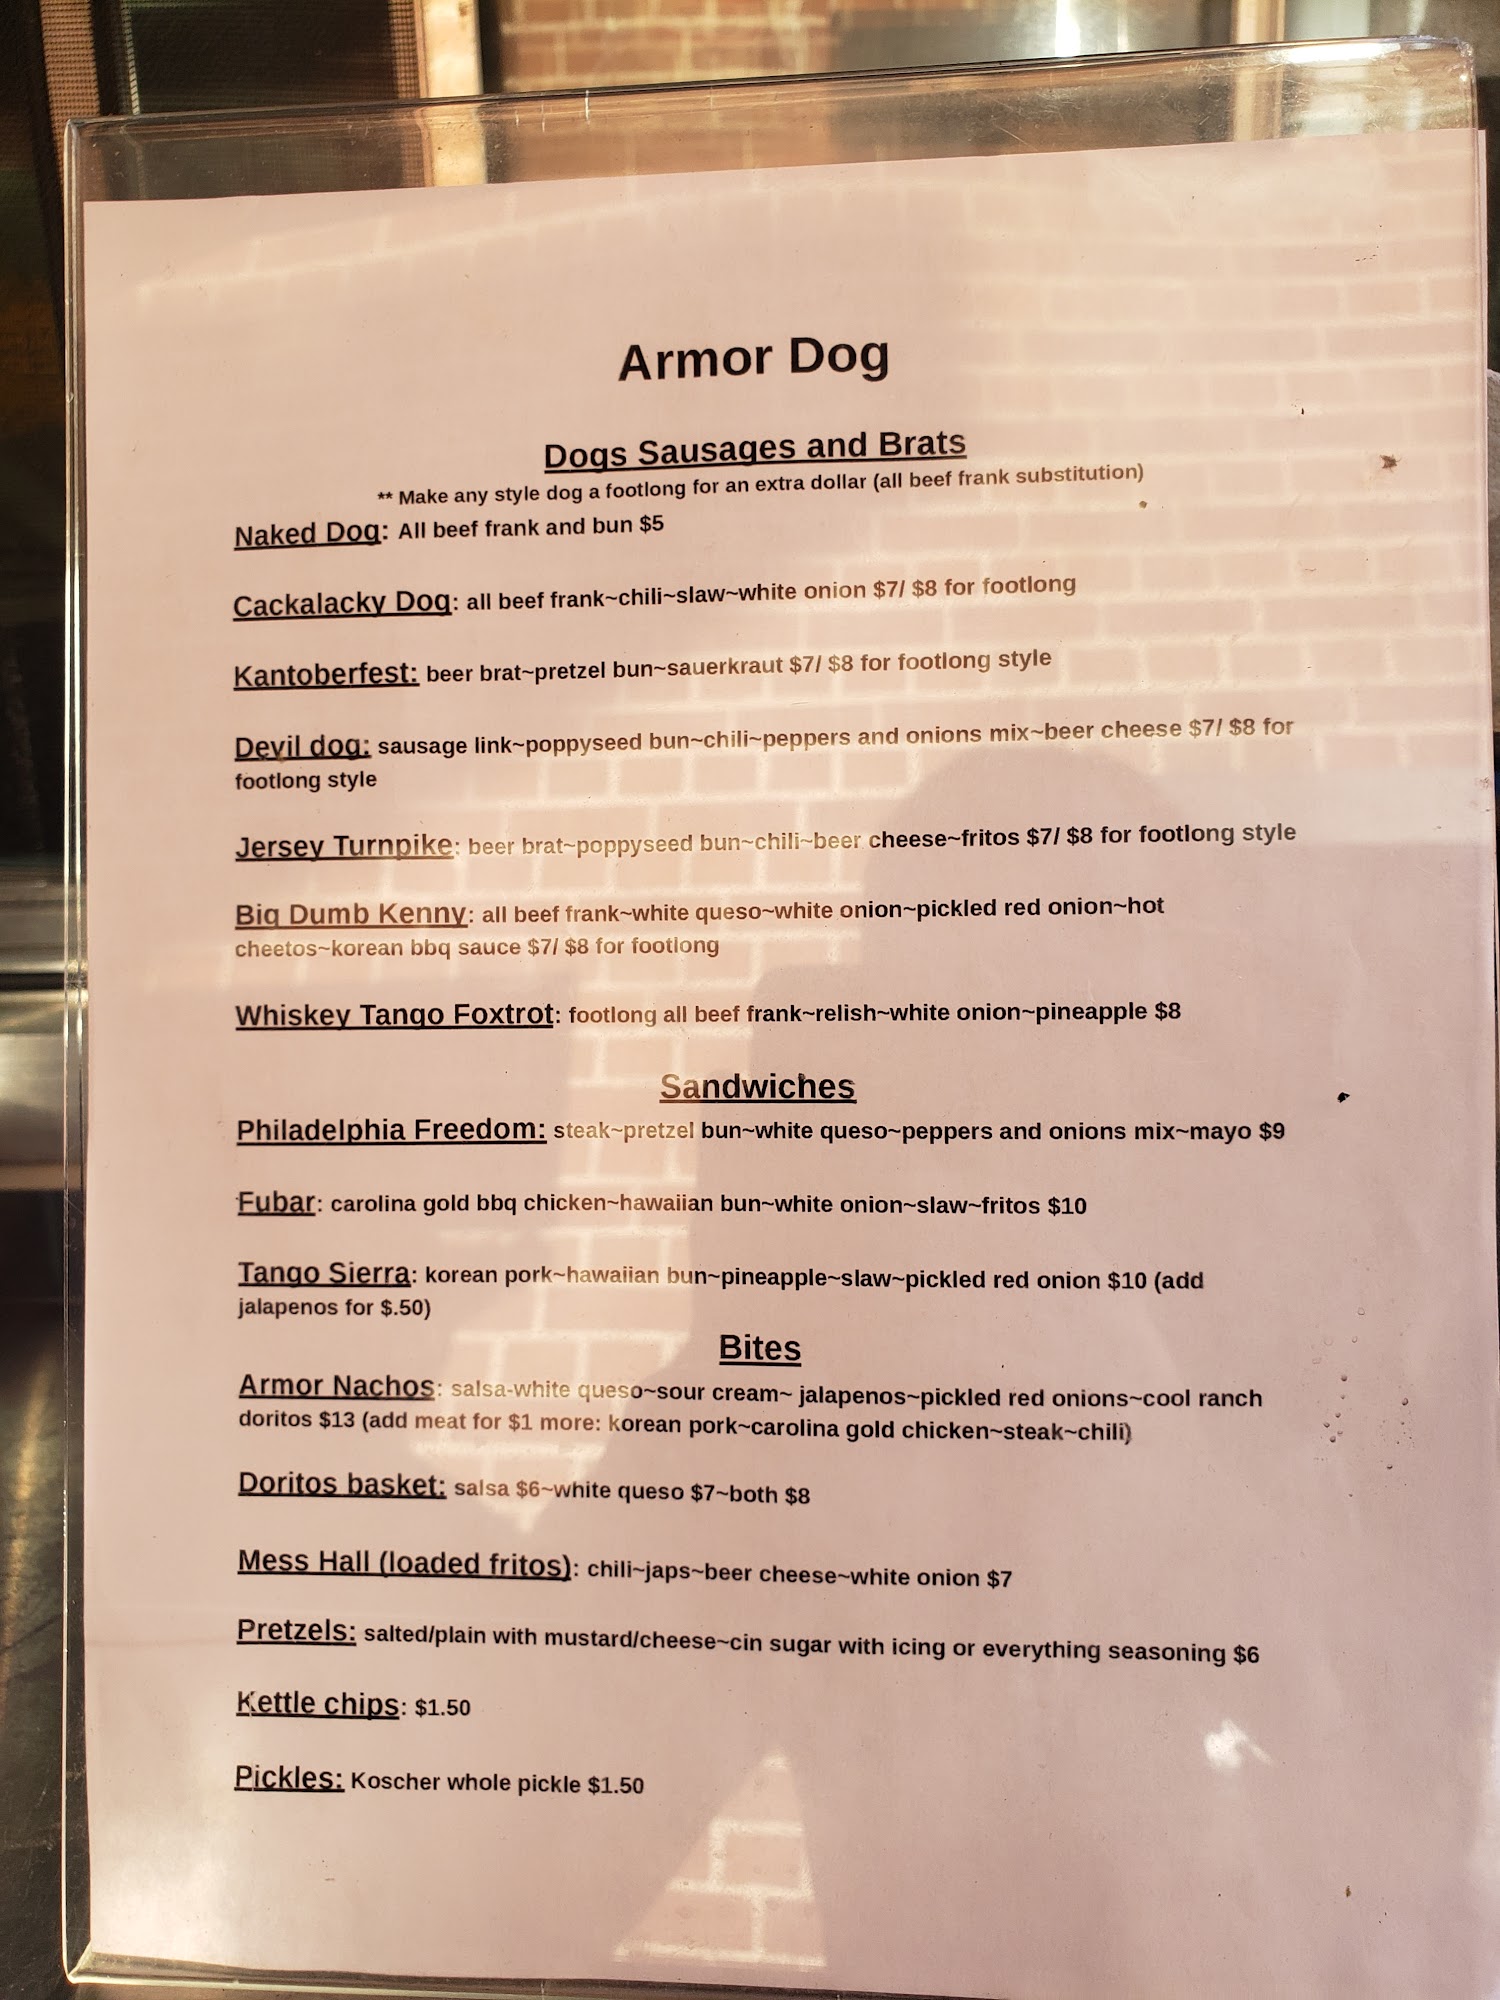 Armor Dog
Dogs Sausages and Brats
** Make any style dog a footlong for an extra dollar (all beef frank substitution)
Naked Dog: All beef frank and bun $5
Cackalacky Dog: all beef frank~chili~slaw~white onion $7/ $8 for footlong
Kantoberfest: beer brat~pretzel bun~sauerkraut $7/ $8 for footlong style
Devil dog: sausage link~poppyseed bun~chili~peppers and onions mix~beer cheese $7/ $8 for
footlong style
Jersey Turnpike: beer brat~poppyseed bun~chili~beer cheese~fritos $7/ $8 for footlong style
Big Dumb Kenny: all beef frank~white queso~white onion~pickled red onion~hot
cheetos~korean bbq sauce $7/ $8 for footlong
Whiskey Tango Foxtrot: footlong all beef frank~relish~white onion~pineapple $8
Sandwiches
Philadelphia Freedom: steak~pretzel bun~white queso~peppers and onions mix~mayo $9
Fubar: carolina gold bbq chicken~hawaiian bun~white onion~slaw~fritos $10
Tango Sierra: korean pork~hawaiian bun~pineapple~slaw~pickled red onion $10 (add
jalapenos for $.50)
Bites
Armor Nachos: salsa-white queso~sour cream~ jalapenos~pickled red onions~cool ranch
doritos $13 (add meat for $1 more: korean pork~carolina gold chicken~steak~chili)
Doritos basket: salsa $6~white queso $7~both $8
Mess Hall (loaded fritos): chili~japs~beer cheese~white onion $7
Pretzels: salted/plain with mustard/cheese~cin sugar with icing or everything seasoning $6
Kettle chips: $1.50
Pickles: Koscher whole pickle $1.50